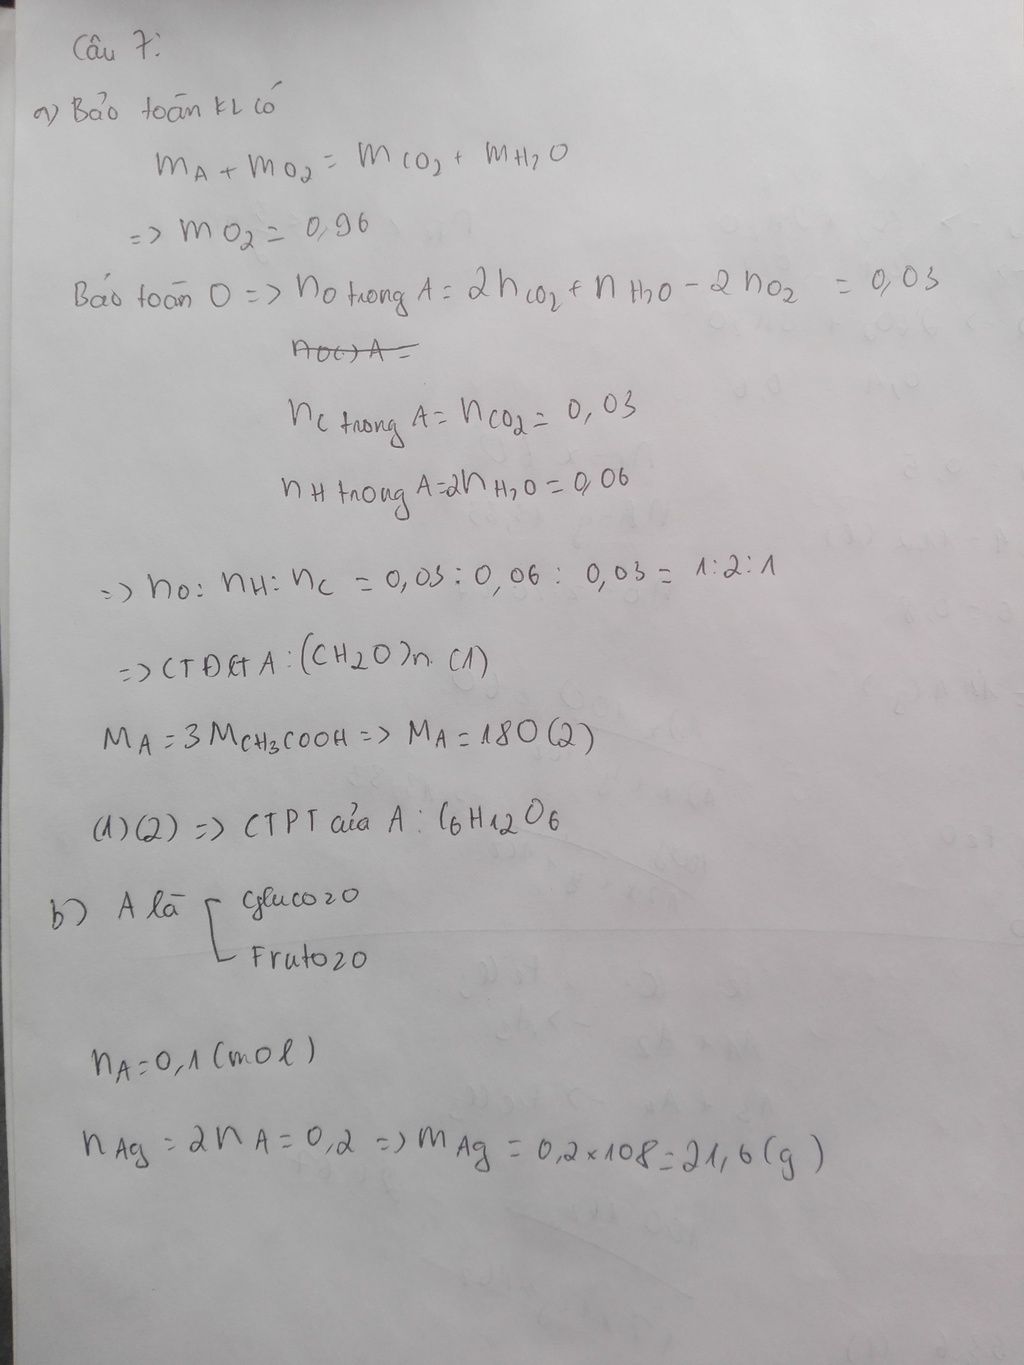 Câu 7:
a) Bảo toàn KL có
mA + mO2 = mCO2 + mH2O
=> mO2 = 0,96
Bảo toàn O => nO trong A = 2nCO2 + nH2O - 2nO2 = 0,03
nO(-)A =
nC trong A = nCO2 = 0,03
nH trong A = 2nH2O = 0,06
=> nO : nH : nC = 0,03 : 0,06 : 0,03 = 1:2:1
=> CTĐGN A : (CH2O)n (1)
MA = 3MCH3COOH => MA = 180 (2)
(1)(2) => CTPT của A : C6H12O6
b) A là Glucozo
Frutozo
nA = 0,1 (mol)
nAg = 2nA = 0,2 => mAg = 0,2 × 108 = 21,6 (g)